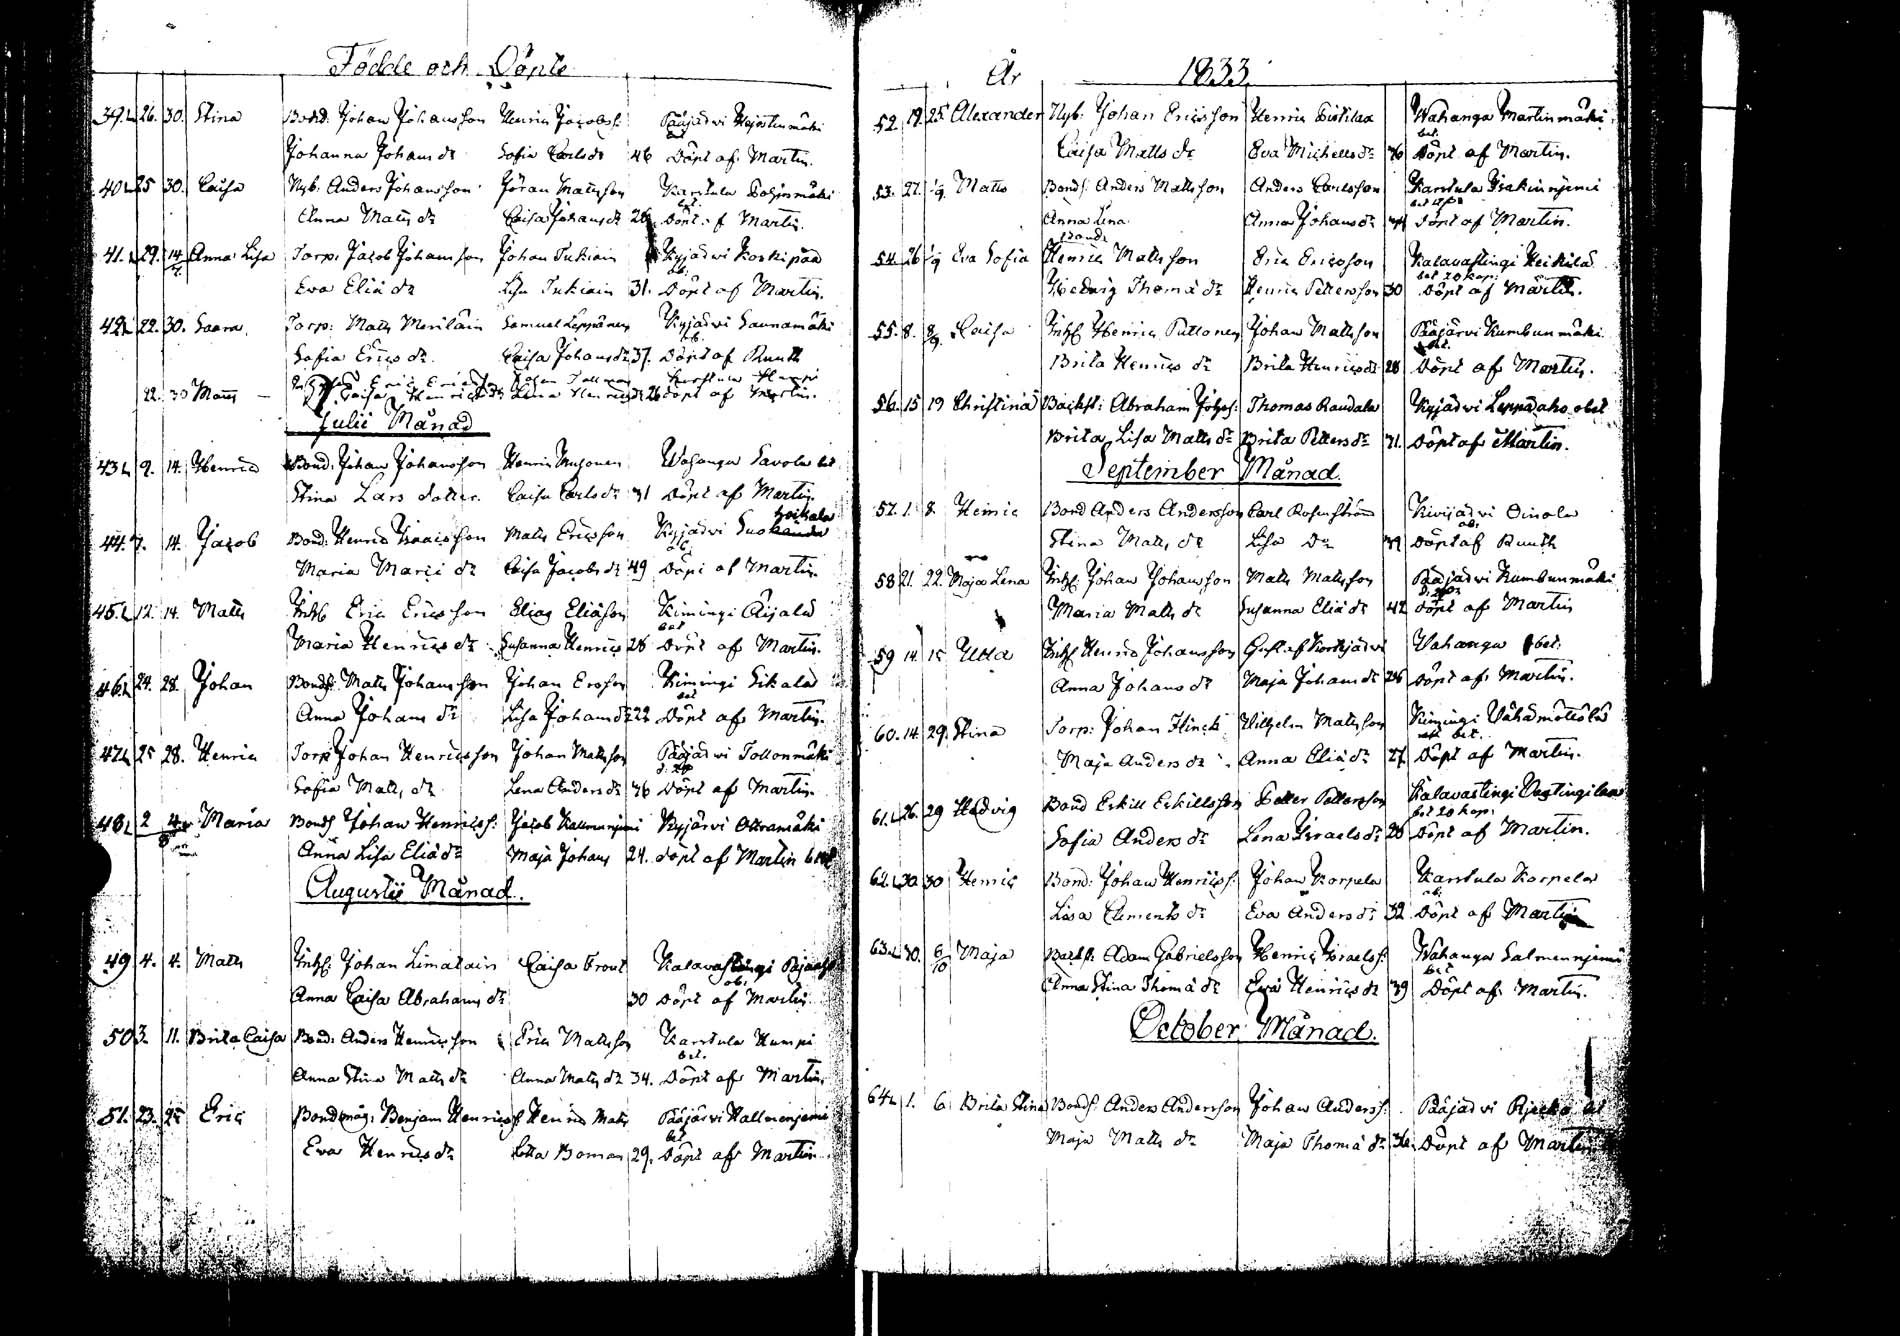 Födde och Döpte
39. 26. 30. Stina Bond: Johan Johansson Henric Jacobss: Pääjärvi
bet
Johanna Johans dr Sofia Carls dr 46 Döpt af Martin.
40 25 30. Caisa Nyb: Anders Johansson Göran Mattsson Karstula
bet
Anna Matts dr Caisa Johans dr 26 Döpt af Martin.
41. 29. 14/7. Anna Lisa Torp: Jacob Johansson Johan Tukiain Kyjärvi Koskipää
ob:
Eva Eliä dr Lisa Tukiain 31. Döpt af Martin.
42 22. 30. Saara Torp: Matts Meriläin Samuel Leppänen Kyjärvi Saunamäki
ob.
Sofia Erics dr Caisa Johans dr 37. Döpt af Ruuth
22. 30 Matts — Eric Johan Karstula Humpi
Caisa Henrics dr Lena Henrics dr 26 Döpt af Martin.
Julii Månad
43 9. 14. Henric Bond: Johan Johansson Henric Wahanga Savola bet
Stina Lars dotter. Caisa Carls dr 31 Döpt af Martin.
heikala
44. 7. 14. Jacob Bond: Henric Isaacsson Matts Ericsson Kyjärvi
ob:
Maria Marci dr Caisa Jacobs dr 49 Döpt af Martin.
45. 12. 14. Matts Inhs Eric Ericsson Elias Eliäson Kimingi Äijälä
bet
Maria Henrics dr Susanna Henrics 26 Döpt af Martin.
46. 24. 28. Johan Bonds: Matts Johansson Johan Ersson Kimingi Sikala
bet
Anna Johans dr Lisa Johans dr 22 Döpt af Martin.
47 25 28. Henric Torp Johan Henricsson Johan Mattsson Pääjärvi
Sofia Matts dr Lena Anders dr 36 Döpt af Martin.
48 2 4/8 Maria Bonds Johan Henricss: Jacob Kyjärvi Ottramäki
Anna Lisa Eliä dr Maja Johans 24. döpt af Martin bet
Augustii Månad.
49 4. 4. Matts Inhs: Johan Limatain Caisa Frout Kalavastingi
ob:
Anna Caisa Abrahams dr 30 Döpt af Martin
50 3. 11. Brita Caisa Bond: Anders Henricsson Eric Mattsson Karstula Humpi
bet.
Anna Stina Matts dr Anna Matts dr 34. Döpt af Martin.
51. 23. 25 Eric Bondemåg: Benjam Henricss Henric Matts Pääjärvi
bet
Eva Henrics dr Lotta Boman 29. Döpt af Martin
År 1833.
52. 19. 25 Alexander Nyb: Johan Ericsson Henric Pistilaa Wahanga Martinmäki
bet.
Caisa Matts dr Eva Michells dr 36 Döpt af Martin.
53. 27. 1/9 Matts Bonds: Anders Mattsson Anders Carlsson Karstula
Anna Lena Anna Johans dr 44 döpt af Martin.
54 26 1/9 Eva Sofia Henric Mattsson Eric Ericsson Kalavastingi Heikilä
bet 20 kop:
Hedvig Thomä dr Henric Pettersson 30 Döpt af Martin.
55. 8. 8/9. Caisa Inhs Henric Puttonen Johan Mattsson Pääjärvi Kumbunmäki
bet.
Brita Henrics dr Brita Henrics dr 28 Döpt af Martin.
56. 15 19 Christina Backst: Abraham Johss: Thomas Raudala Kyjärvi Leppäaho obet
Brita Lisa Matts dr Brita Petters dr 31. Döpt af Martin.
September Månad.
57. 1. 8. Henric Bond Anders Andersson Carl Rosenström Kivijärvi Oinola
ob.
Stina Matts dr Lisa Dr 39 Döpt af Ruuth
58 21. 22. Maja Lena Inhs: Johan Johansson Matts Mattsson Pääjärvi Kumbunmäki
Maria Matts dr Susanna Eliä dr 42 döpt af Martin
59 14. 15 Ulla Inhs Henric Johansson Wahanga bet.
Anna Johans dr Maja Johans dr 26 Döpt af Martin.
60. 14. 29. Stina Torp: Johan Flinck Wilhelm Mattsson Kimingi
bet.
Maja Anders dr Anna Eliä dr 27. Döpt af Martin.
61. 26. 29 Hedvig Bond Eskill Eskillsson Petter Pettersson Kalavastingi
bet 20 kop:
Sofia Anders dr Lena Israels dr 28 Döpt af Martin.
62. 30. 30 Henric Bond: Johan Henricss: Johan Korpela Karstula Korpela
ob:
Lisa Clements dr Eva Anders dr 32 Döpt af Martin
63. 30. 6/10 Maja Backst: Adam Gabrielsson Henric Israelss: Wahanga
bet
Anna Stina Thomä dr Eva Henrics dr 39 Döpt af Martin.
October Månad.
64 1. 6 Brita Stina Bonds: Anders Andersson Johan Anderss: Pääjärvi bet
Maja Matts dr Maja Thomä dr 36 Döpt af Martin